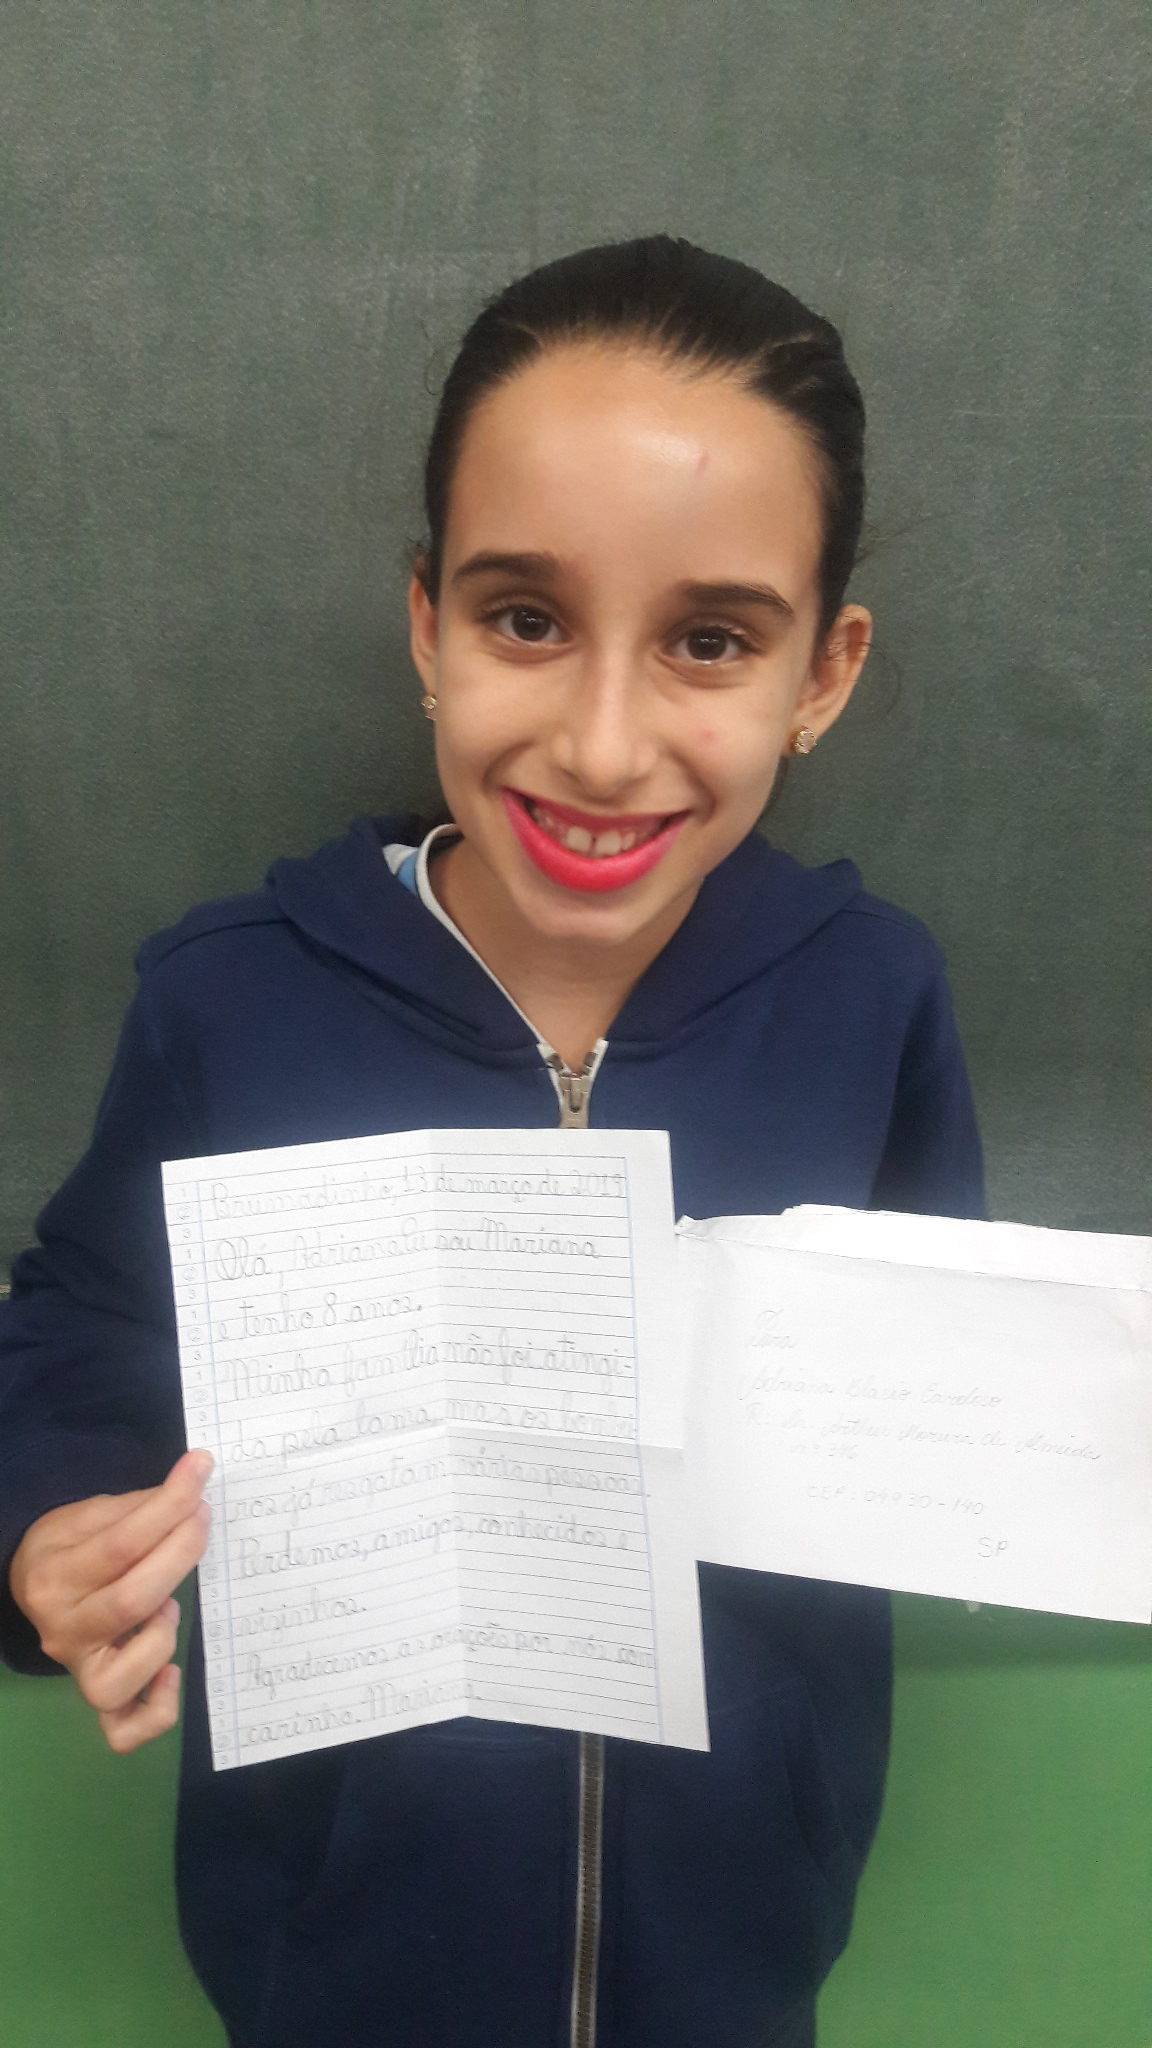 Brumadinho, 13 de março de 2019
Olá, Adriana eu sou Mariana
e tenho 8 anos.
Minha família não foi atingi-
da pela lama, mas os bombei
ros já resgatam várias pessoas.
Perdemos, amigos, conhecidos e
vizinhos.
Agradecemos as orações por nós com
carinho. Mariana.
Para
Adriana Cardoso
R: Dr. Arthur Moreira de Almeida
nº 346
CEP: 04930-140
SP